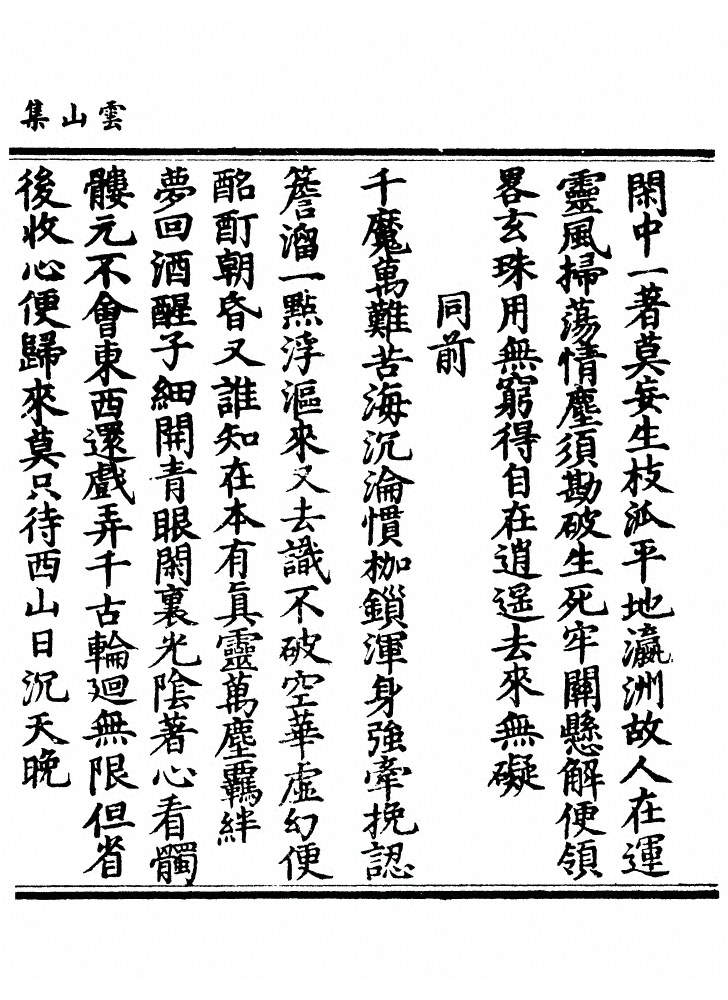 雲山集
閑中一著莫妄生枝派平地瀛洲故人在運
靈風掃蕩情塵須勘破生死牢關懸解便領
畧玄珠用無窮得自在逍遥去來無礙
同前
千魔萬難苦海沉淪慣枷鎖渾身強牽挽認
簷溜一點浮漚來又去識不破空華虛幻便
酩酊朝昏又誰知在本有眞靈萬塵羈絆
夢回酒醒子細開青眼閑裏光陰著心看髑
髏元不會東西還戲弄千古輪廻無限但省
後收心便歸來莫只待西山日沉天晚